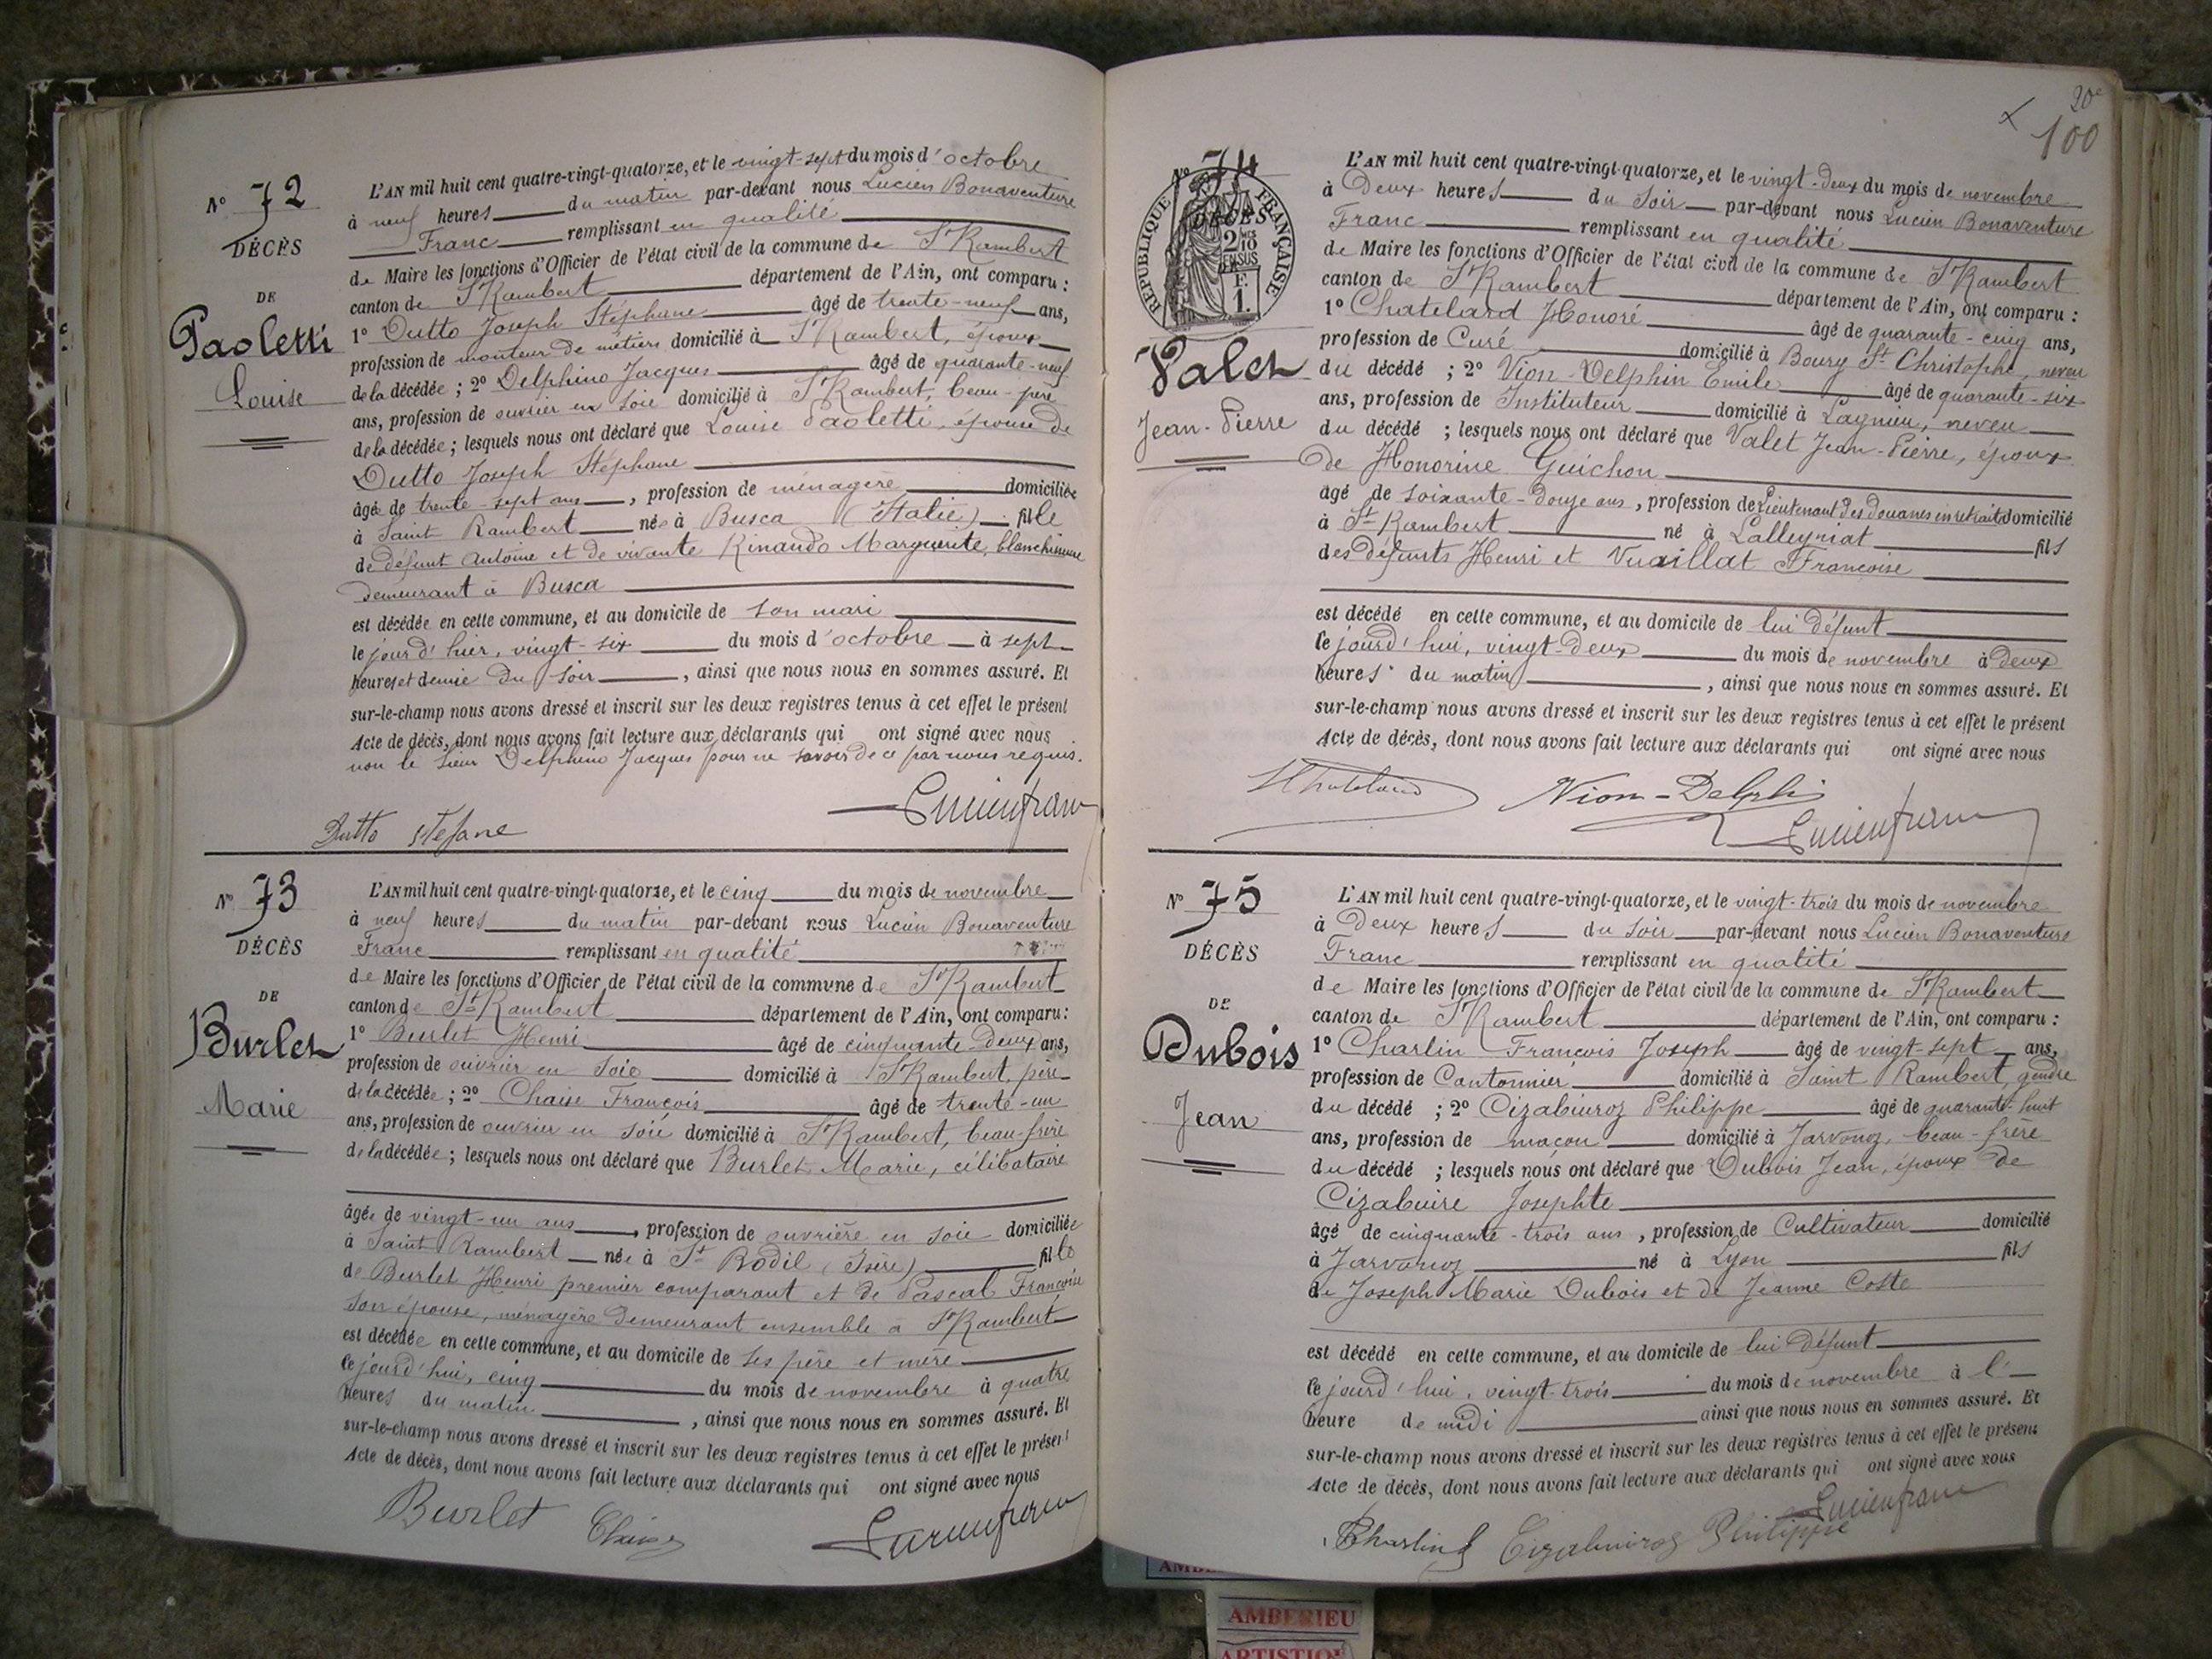 Nº 72
DÉCÈS
DE
Paoletti
Louise
L'AN mil huit cent quatre-vingt-quatorze, et le vingt-sept du mois d'octobre
à neuf heures du matin par-devant nous Lucien Bonaventure
Franc remplissant en qualité
de Maire les fonctions d'Officier de l'état civil de la commune de St Rambert
canton de St Rambert département de l'Ain, ont comparu :
1º Dutto Joseph Stéphane âgé de trente-neuf ans,
profession de monteur de métiers domicilié à St Rambert, époux
de la décédée ; 2º Delphino Jacques âgé de quarante-neuf
ans, profession de ouvrier en soie domicilié à St Rambert, beau-père
de la décédée ; lesquels nous ont déclaré que Louise Paoletti, épouse de
Dutto Joseph Stéphane
âgée de trente-sept ans, profession de ménagère domiciliée
à Saint Rambert née à Busca (Italie) fille
de défunt Antoine et de vivante Rinaudo Marguerite, blanchisseuse
demeurant à Busca
est décédée en cette commune, et au domicile de son mari
le jourd'hier, vingt-six du mois d'octobre à sept
heures et demie du soir, ainsi que nous nous en sommes assuré. Et
sur-le-champ nous avons dressé et inscrit sur les deux registres tenus à cet effet le présent
Acte de décès, dont nous avons fait lecture aux déclarants qui ont signé avec nous
non le sieur Delphino Jacques pour ne savoir de ce par nous requis.
Dutto Stefane
Lucien franc
Nº 73
DÉCÈS
DE
Burlet
Marie
L'AN mil huit cent quatre-vingt-quatorze, et le cinq du mois de novembre
à neuf heures du matin par-devant nous Lucien Bonaventure
Franc remplissant en qualité
de Maire les fonctions d'Officier de l'état civil de la commune de St Rambert
canton de St Rambert département de l'Ain, ont comparu :
1º Burlet Henri âgé de cinquante-deux ans,
profession de ouvrier en soie domicilié à St Rambert, père
de la décédée ; 2º Chaise François âgé de trente-un
ans, profession de ouvrier en soie domicilié à St Rambert, beau-frère
de la décédée ; lesquels nous ont déclaré que Burlet Marie, célibataire
âgée de vingt-un ans, profession de ouvrière en soie domiciliée
à Saint Rambert née à St Bodil (Isère) fille
de Burlet Henri premier comparant et de Pascal Françoise
son épouse, ménagère demeurant ensemble à St Rambert
est décédée en cette commune, et au domicile de ses père et mère
le jourd'hui, cinq du mois de novembre à quatre
heures du matin, ainsi que nous nous en sommes assuré. Et
sur-le-champ nous avons dressé et inscrit sur les deux registres tenus à cet effet le présent
Acte de décès, dont nous avons fait lecture aux déclarants qui ont signé avec nous
Burlet Chaise Lucien franc
20e
100
Nº 74
DÉCÈS
RÉPUBLIQUE FRANÇAISE
Valet
Jean-Pierre
L'AN mil huit cent quatre-vingt-quatorze, et le vingt-deux du mois de novembre
à Deux heures du soir par-devant nous Lucien Bonaventure
Franc remplissant en qualité
de Maire les fonctions d'Officier de l'état civil de la commune de St Rambert
canton de St Rambert département de l'Ain, ont comparu :
1º Chatelard Honoré âgé de quarante-cinq ans,
profession de Curé domicilié à Bourg St Christophe, neveu
du décédé ; 2º Vion-Delphin Emile âgé de quarante-six
ans, profession de Instituteur domicilié à Lagnieu, neveu
du décédé ; lesquels nous ont déclaré que Valet Jean-Pierre, époux
de Honorine Guichon
âgé de soixante-douze ans, profession de Lieutenant des Douanes en retraite domicilié
à St Rambert né à Lalleyriat fils
des défunts Henri et Vuaillat Francoise
est décédé en cette commune, et au domicile de lui défunt
le jourd'hui, vingt-deux du mois de novembre à deux
heures du matin, ainsi que nous nous en sommes assuré. Et
sur-le-champ nous avons dressé et inscrit sur les deux registres tenus à cet effet le présent
Acte de décès, dont nous avons fait lecture aux déclarants qui ont signé avec nous
H Chatelard Vion-Delphin
Lucien franc
Nº 75
DÉCÈS
DE
Dubois
Jean
L'AN mil huit cent quatre-vingt-quatorze, et le vingt-trois du mois de novembre
à Deux heures du soir par-devant nous Lucien Bonaventure
Franc remplissant en qualité
de Maire les fonctions d'Officier de l'état civil de la commune de St Rambert
canton de St Rambert département de l'Ain, ont comparu :
1º Charlin François Joseph âgé de vingt-sept ans,
profession de Cantonnier domicilié à Saint Rambert, gendre
du décédé ; 2º Cizabuiroz Philippe âgé de quarante-huit
ans, profession de maçon domicilié à Javornoz, beau-frère
du décédé ; lesquels nous ont déclaré que Dubois Jean, époux de
Cizabuire Josephte
âgé de cinquante-trois ans, profession de Cultivateur domicilié
à Javornoz né à Lyon fils
de Joseph Marie Dubois et de Jeanne Coste
est décédé en cette commune, et au domicile de lui défunt
le jourd'hui, vingt-trois du mois de novembre à l'
heure de midi ainsi que nous nous en sommes assuré. Et
sur-le-champ nous avons dressé et inscrit sur les deux registres tenus à cet effet le présent
Acte de décès, dont nous avons fait lecture aux déclarants qui ont signé avec nous
Lucien franc
Charlin Cizabuiroz Philippe
AMBERIEU